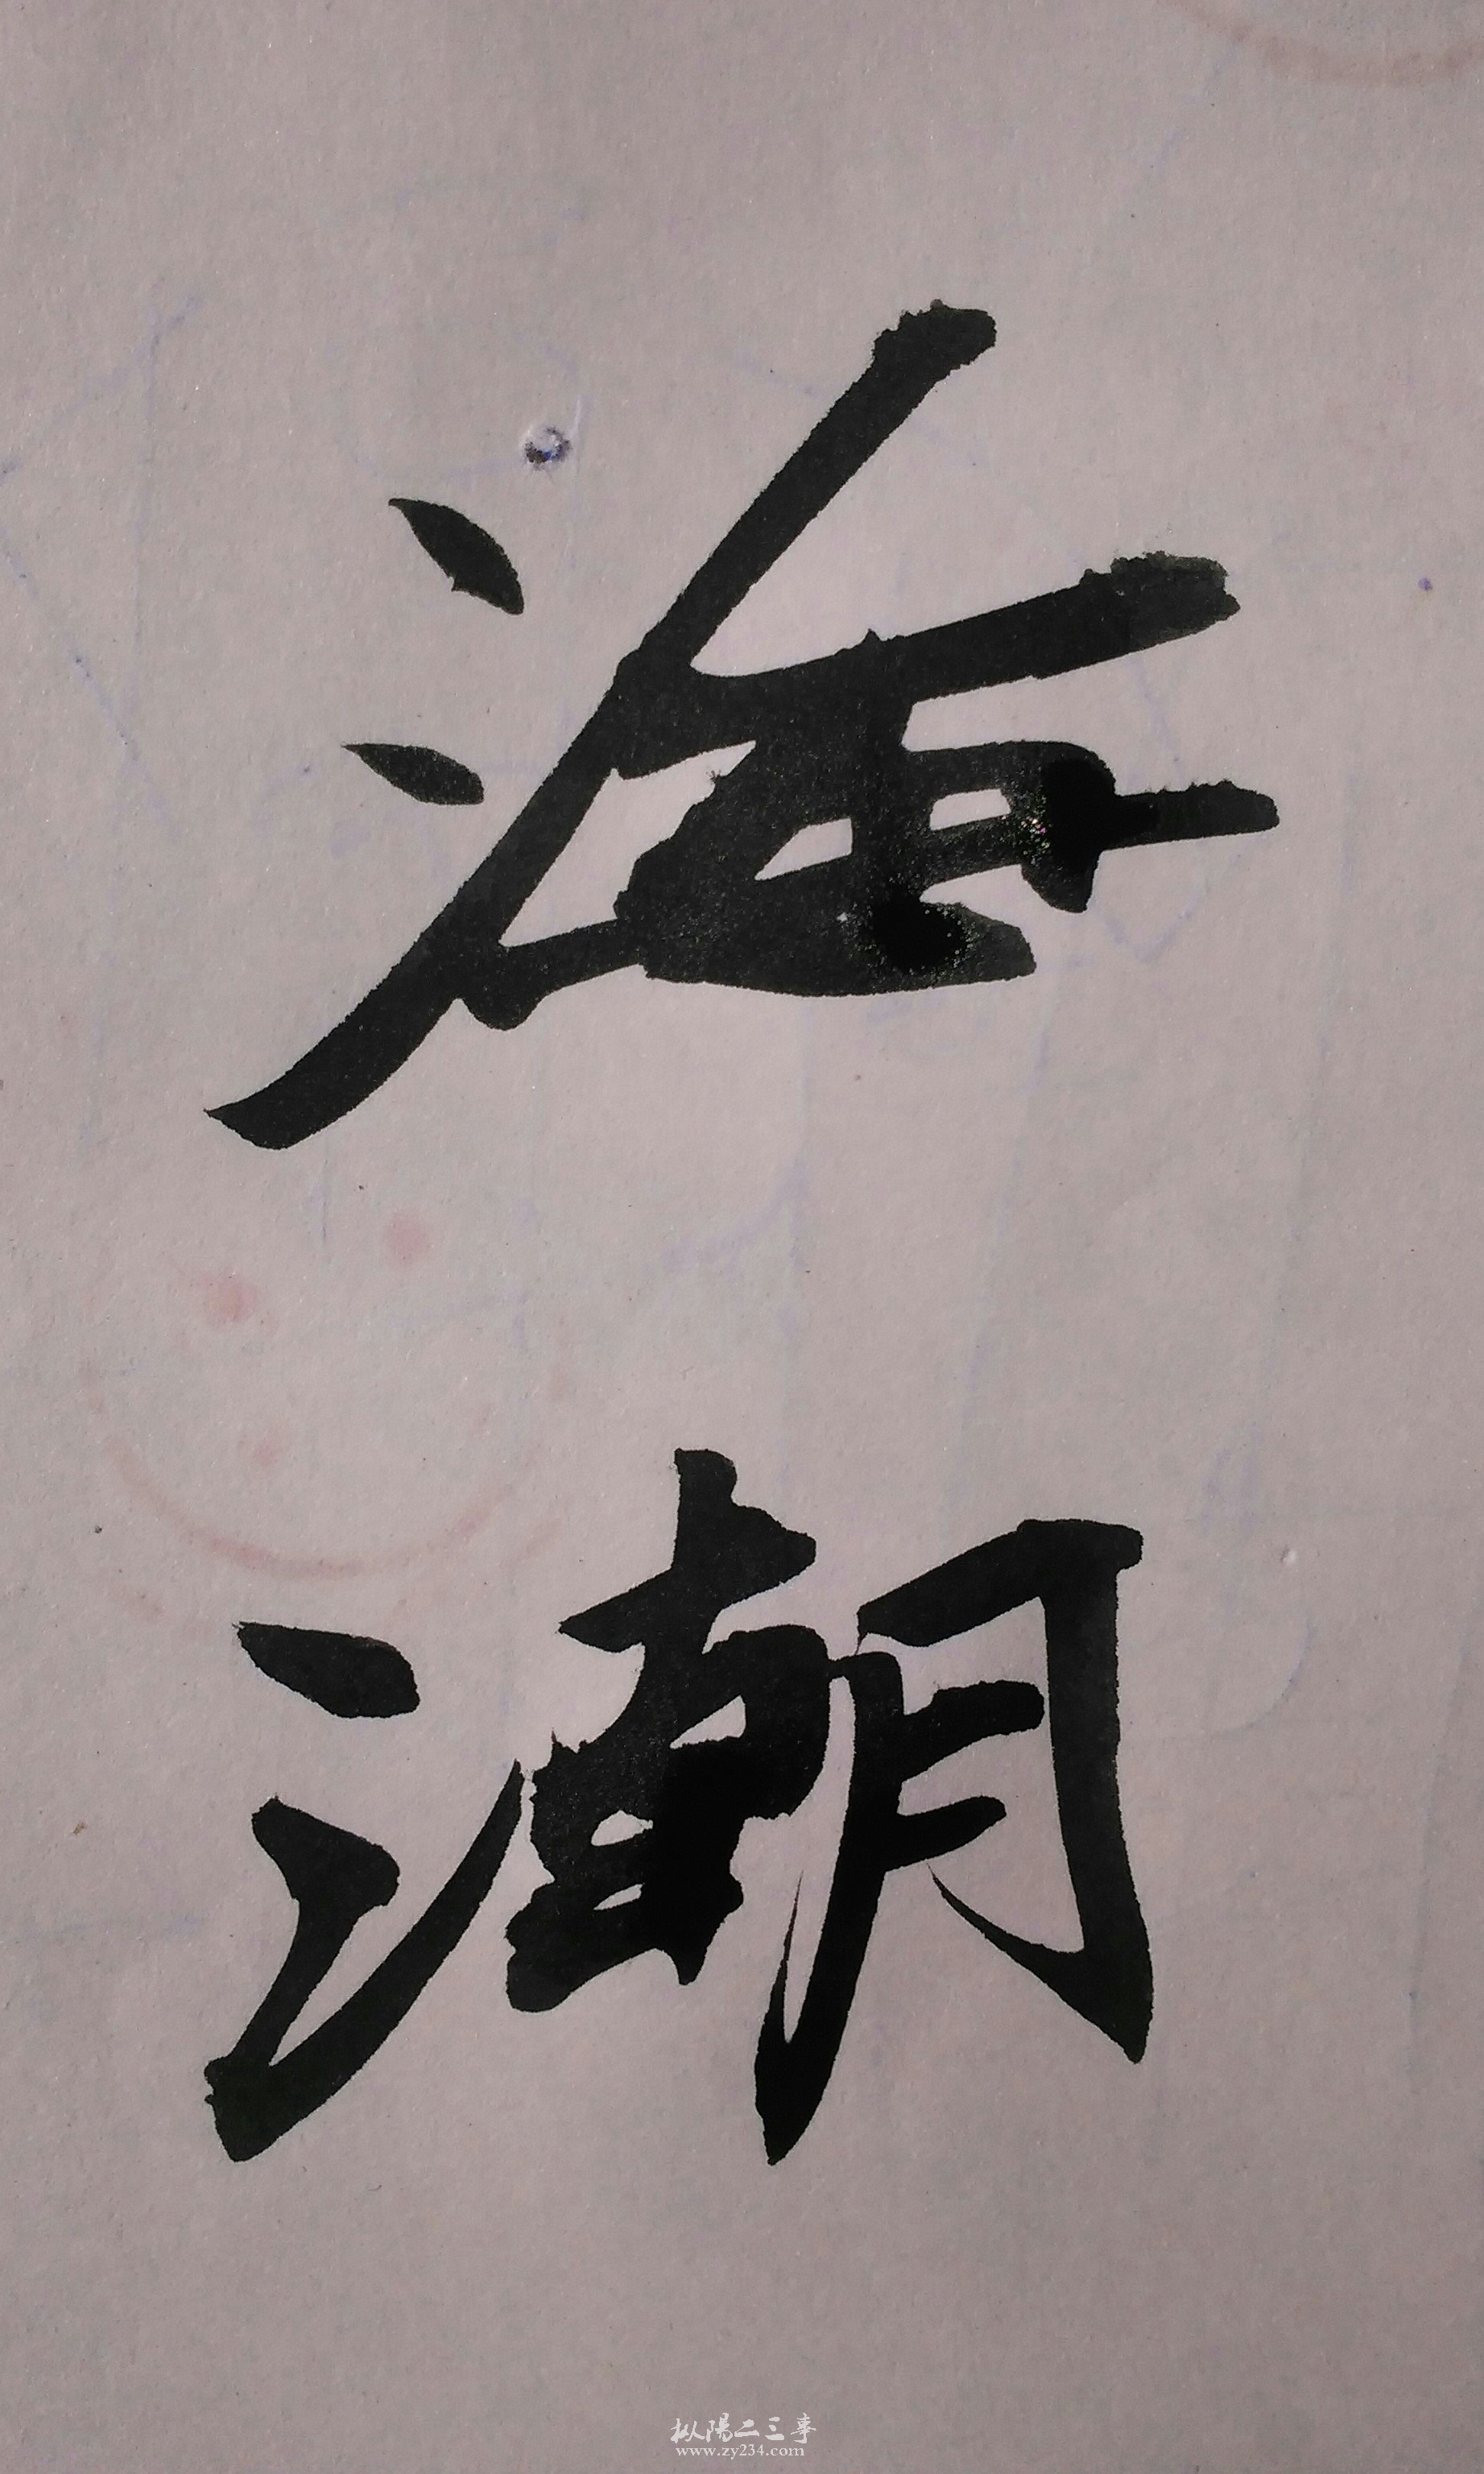 海
潮
枞陽二三事
www.zy234.com